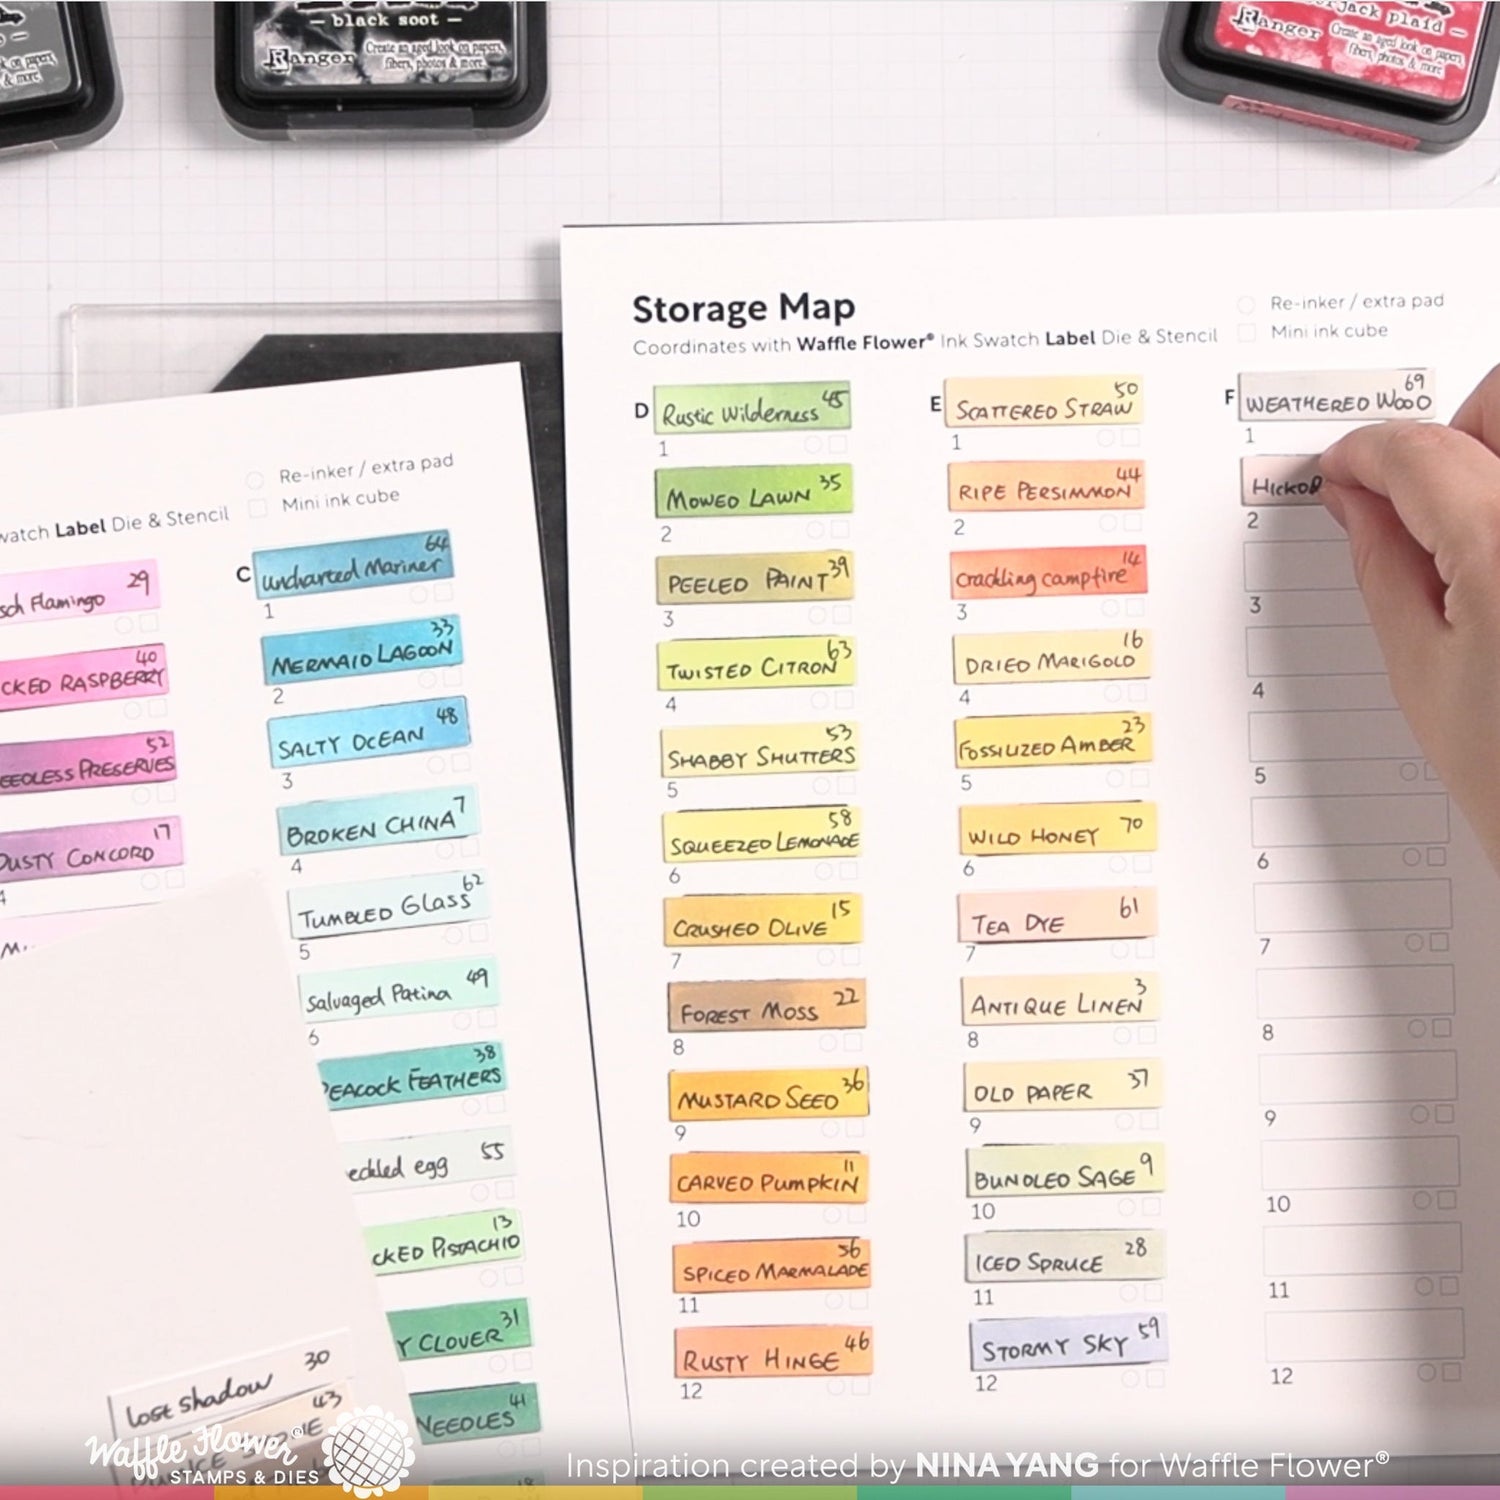 black soot
Ranger
Create an aged look on papers,
fibers, photos & more.
jack plaid
Ranger
Create an aged look on papers,
fibers, photos & more.
Storage Map
Coordinates with Waffle Flower® Ink Swatch Label Die & Stencil
Re-inker / extra pad
Mini ink cube
D Rustic Wilderness 45
1
MOWED LAWN 35
2
PEELED PAINT 39
3
TWISTED CITRON 63
4
SHABBY SHUTTERS 53
5
SQUEEZED LEMONADE 58
6
CRUSHED OLIVE 15
7
FOREST MOSS 22
8
MUSTARD SEED 36
9
CARVED PUMPKIN 11
10
SPICED MARMALADE 56
11
RUSTY HINGE 46
12
E SCATTERED STRAW 50
1
RIPE PERSIMMON 44
2
crackling campfire 14
3
DRIED MARIGOLD 16
4
FOSSILIZED AMBER 23
5
WILD HONEY 70
6
TEA DYE 61
7
ANTIQUE LINEN 3
8
OLD PAPER 37
9
BUNDLED SAGE 9
10
ICED SPRUCE 28
11
STORMY SKY 59
12
F WEATHERED WOOD 69
1
HICKO
2
3
4
5
6
7
8
9
10
11
12
Re-inker / extra pad
Mini ink cube
watch Label Die & Stencil
sch Flamingo 29
CKED RASPBERRY 40
EEDLESS PRESERVES 52
DUSTY CONCORD 17
C uncharted Mariner 64
1
MERMAID LAGOON 33
2
SALTY OCEAN 48
3
BROKEN CHINA 7
4
TUMBLED GLASS 62
5
Salvaged Patina 49
6
PEACOCK FEATHERS 38
eckled egg 55
CKED PISTACHIO 13
Y CLOVER 31
NEEDLES 41
lost shadow 30
43
Waffle Flower®
STAMPS & DIES
Inspiration created by NINA YANG for Waffle Flower®